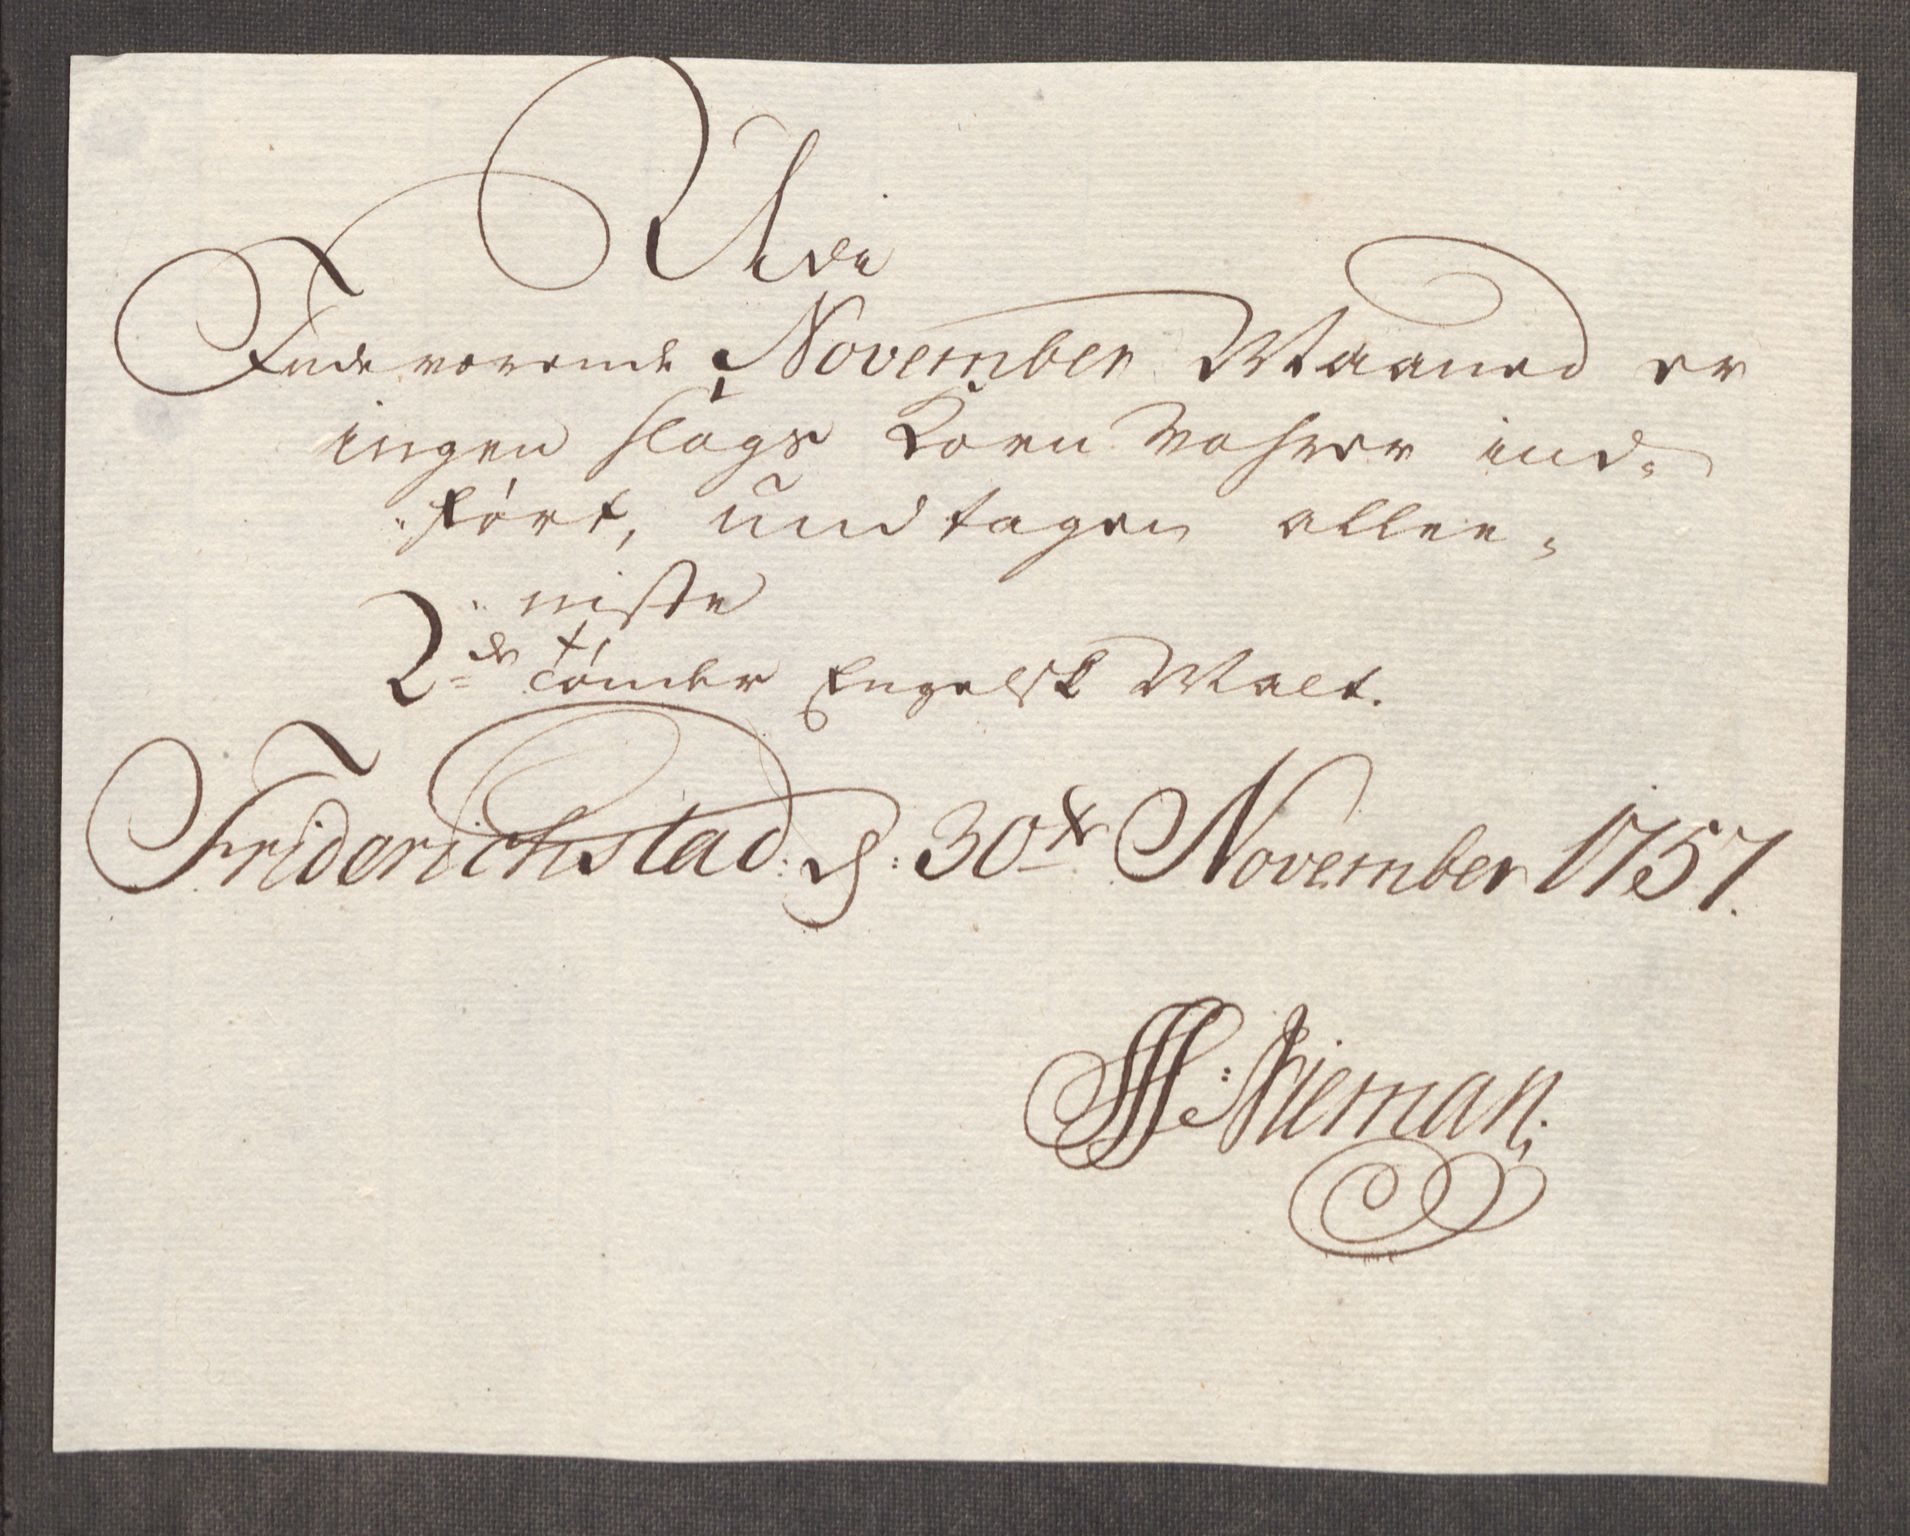 Udi
Indeværende November Maaned er
ingen slags Korn Vahrer ind=
=ført, undtagen allee=
=niste
2de Tønder Engelsk Malt.
Friderichstad d: 30te November 1757.
H: Nieman;